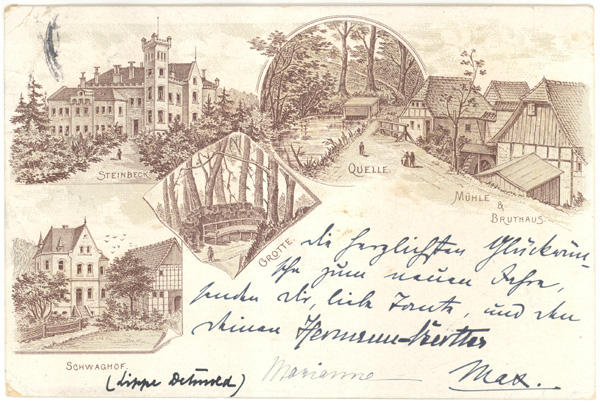 STEINBECK.
QUELLE.
MÜHLE
&
BRUTHAUS.
GROTTE.
SCHWAGHOF.
die herzlichsten Glückwün-
sche zum neuen Jahre,
senden Dir, liebe Tante, und den
deinen Hermann
(Lippe Detmold)
Marianne
Max.